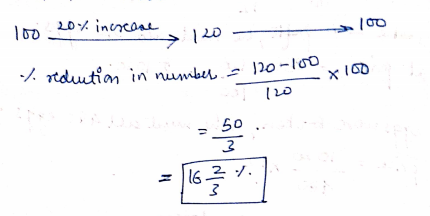 100 20% increase → 120 → 100
% reduction in number = 120-100/120 × 100
= 50/3.
= 16 2/3 %.